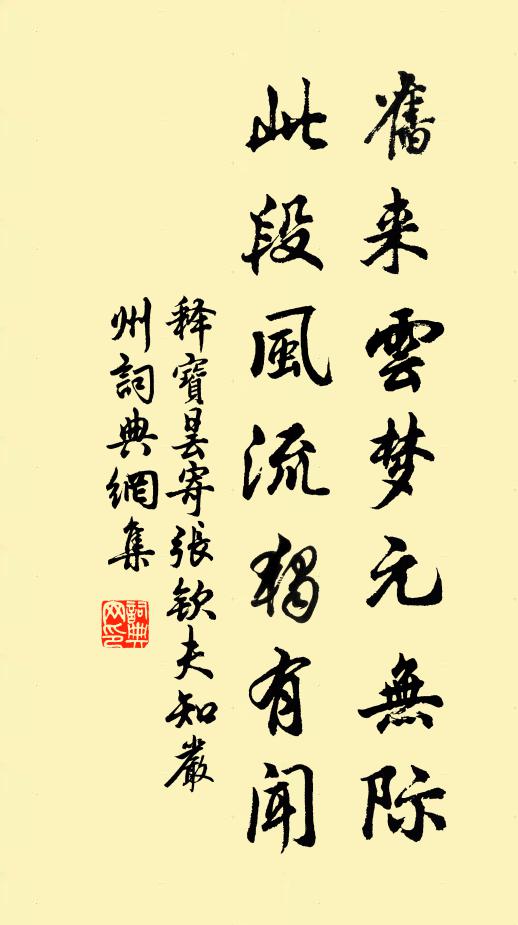 舊来雲梦元無际
此段風流獨有闻
释寶昙寄張钦夫知嚴
州詞典網集
詞典网印